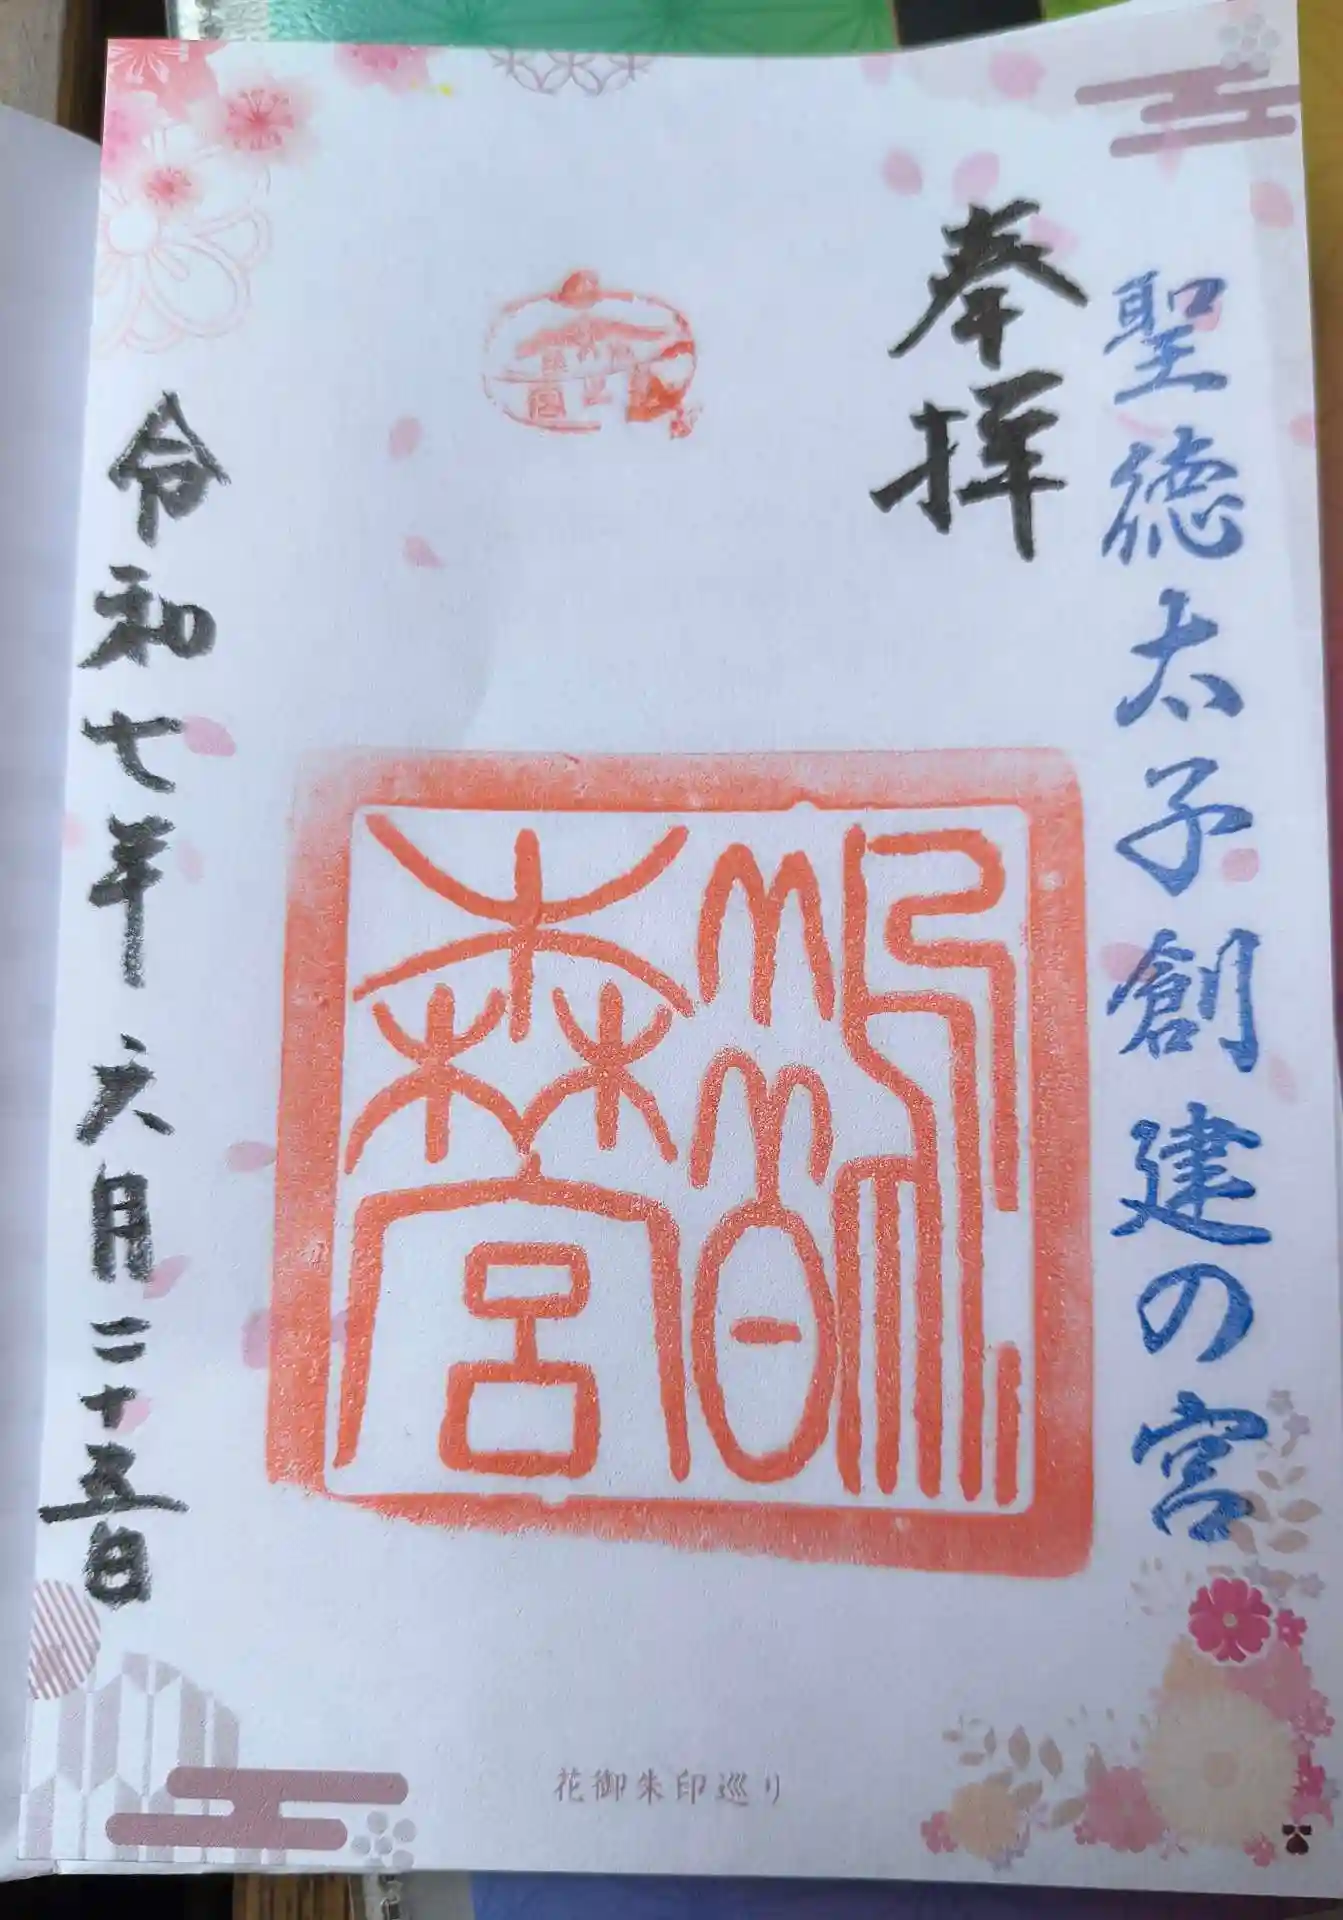 聖徳太子創建の宮
奉拝
鵲
森宮
令和七年六月二十五日
花御朱印巡り